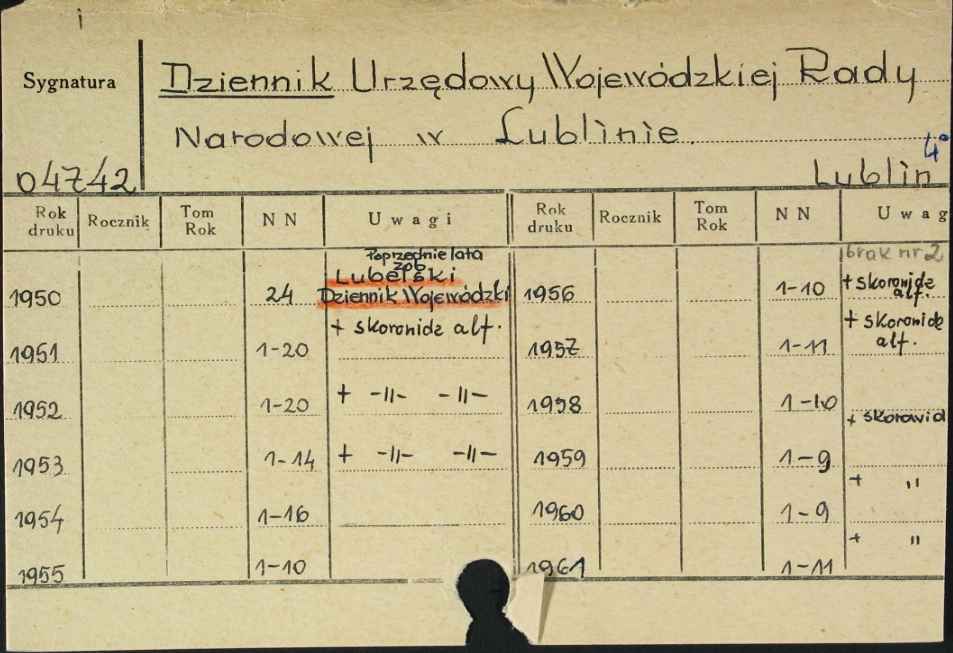 Sygnatura
Dziennik Urzędowy Wojewódzkiej Rady
Narodowej w Lublinie.
4°
04742
Lublin
Rok druku Rocznik Tom Rok NN Uwagi Rok druku Rocznik Tom Rok NN Uwag
Poprzednie lata
zob.
Lubelski
Dziennik Wojewódzki
brak nr 2
1950 24 1956 1-10 + skorowidz alf.
+ skorowidz alf.
1951 1-20 1957 1-11 + skorowidz alf.
1952 1-20 + -11- -11- 1958 1-10
+ skorowid
1953 1-14 + -11- -11- 1959 1-9
+ "
1954 1-16 1960 1-9
+ "
1955 1-10 1961 1-11